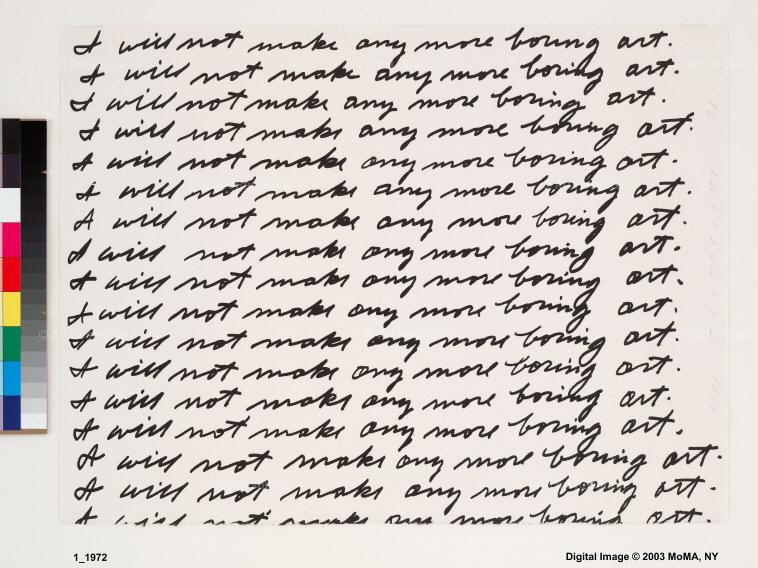 I will not make any more boring art.
I will not make any more boring art.
I will not make any more boring art.
I will not make any more boring art.
I will not make any more boring art.
I will not make any more boring art.
I will not make any more boring art.
I will not make any more boring art.
I will not make any more boring art.
I will not make any more boring art.
I will not make any more boring art.
I will not make any more boring art.
I will not make any more boring art.
I will not make any more boring art.
I will not make any more boring art.
I will not make any more boring art.
I will not make any more boring art.
1_1972
Digital Image © 2003 MoMA, NY